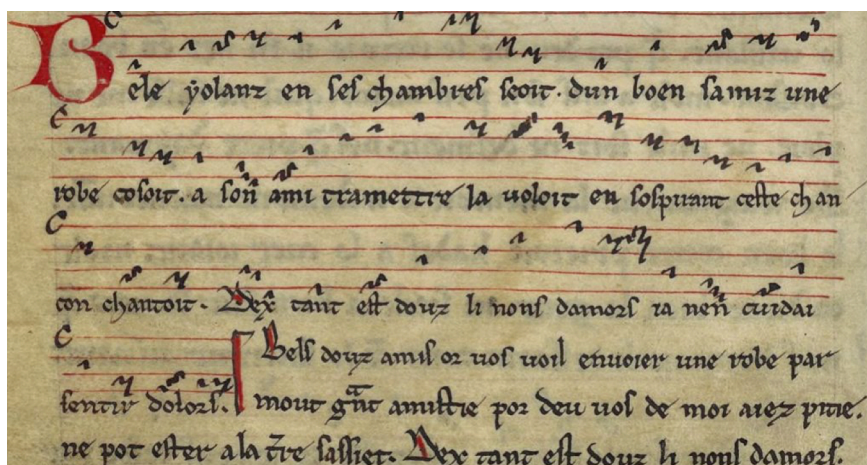 Bele yolanz en ses chambres seoit. dun boen samiz une
robe cosoit. a son ami tramettre la voloit en sospirant ceste chan
con chantoit. Dex tant est douz li nons damors ia nen cuidai
sentir dolors. Bels douz amis or vos voil envoier une robe par
mout gnt amistie por deu vos de moi aiez pitie.
ne pot ester a la tre sassiet. Dex tant est douz li nons damors.